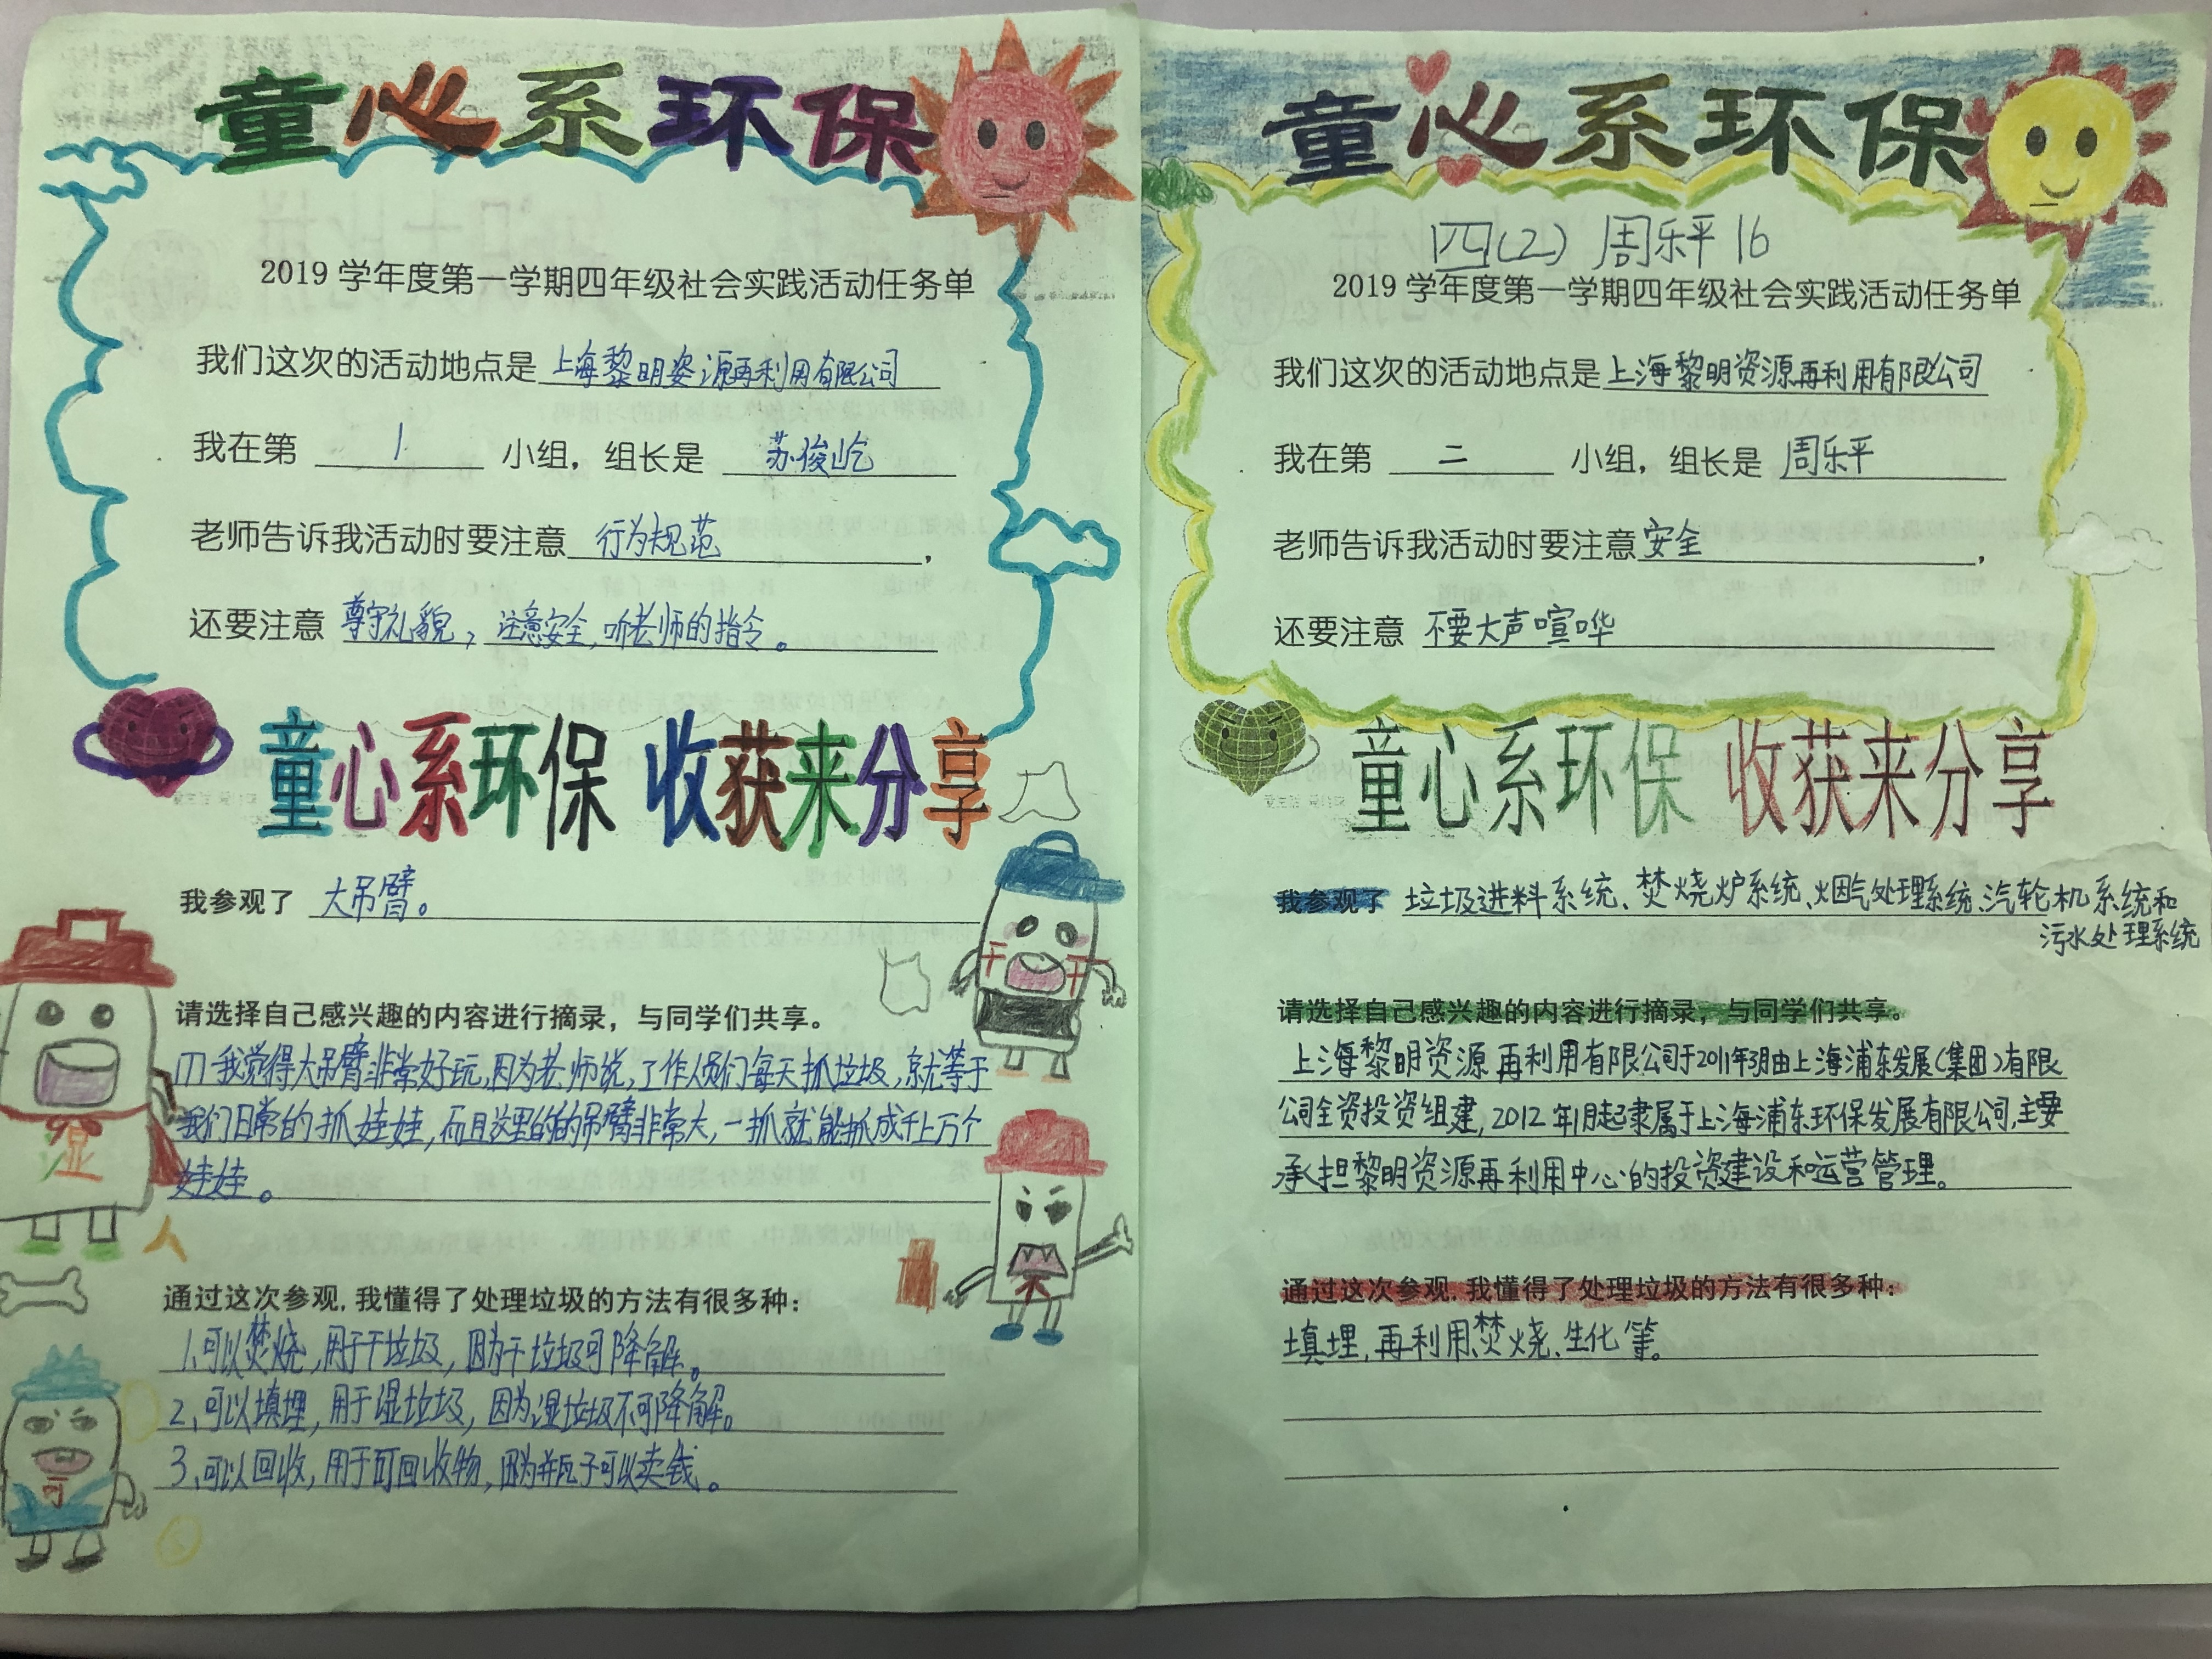 童心系环保
2019 学年度第一学期四年级社会实践活动任务单
我们这次的活动地点是 上海黎明姿源再利用有限公司
我在第 1 小组，组长是 苏俊屹
老师告诉我活动时要注意 行为规范，
还要注意 尊守礼貌，注意安全，听老师的指令。
童心系环保 收获来分享
我参观了 大吊臂。
请选择自己感兴趣的内容进行摘录，与同学们共享。
(1)我觉得大吊臂非常好玩，因为老师说，工作人员们每天抓垃圾，就等于
我们日常的抓娃娃，而且这里的的吊臂非常大，一抓就能抓成千上万个
娃娃。
通过这次参观，我懂得了处理垃圾的方法有很多种：
1、可以焚烧，用于干垃圾，因为干垃圾可降解。
2、可以填埋，用于湿垃圾，因为湿垃圾不可降解。
3、可以回收，用于可回收物，因为瓶子可以卖钱。
干
湿
可
童心系环保
四(2) 周乐平 16
2019 学年度第一学期四年级社会实践活动任务单
我们这次的活动地点是 上海黎明资源再利用有限公司
我在第 二 小组，组长是 周乐平
老师告诉我活动时要注意 安全，
还要注意 不要大声喧哗
童心系环保 收获来分享
我参观了 垃圾进料系统、焚烧炉系统、烟气处理系统、汽轮机系统和
污水处理系统
请选择自己感兴趣的内容进行摘录，与同学们共享。
上海黎明资源再利用有限公司于2011年3月由上海浦东发展(集团)有限
公司全资投资组建，2012年1月起隶属于上海浦东环保发展有限公司，主要
承担黎明资源再利用中心的投资建设和运营管理。
通过这次参观，我懂得了处理垃圾的方法有很多种：
填埋，再利用、焚烧、生化等。